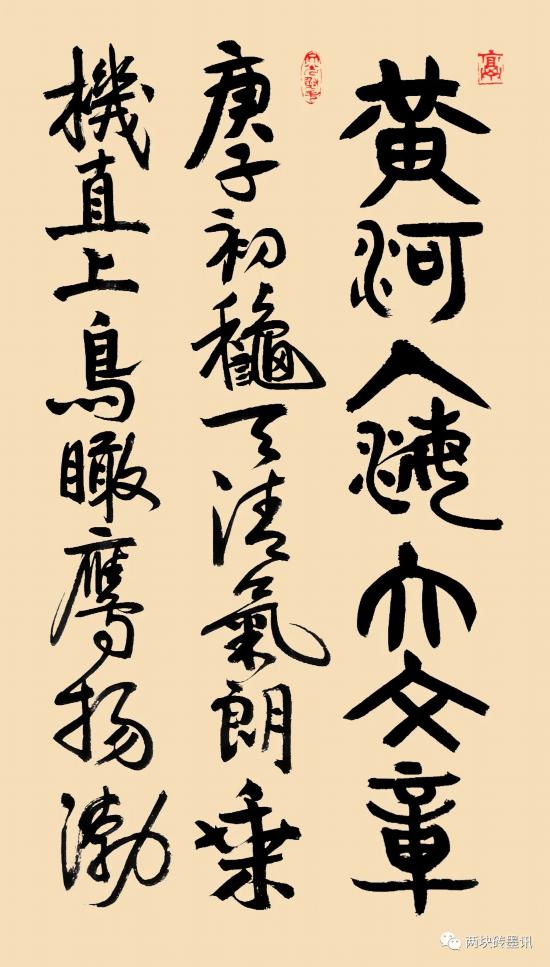 黃河入海大文章
庚子初龝天清氣朗乘
機直上鳥瞰鷹揚渤
两块砖墨讯